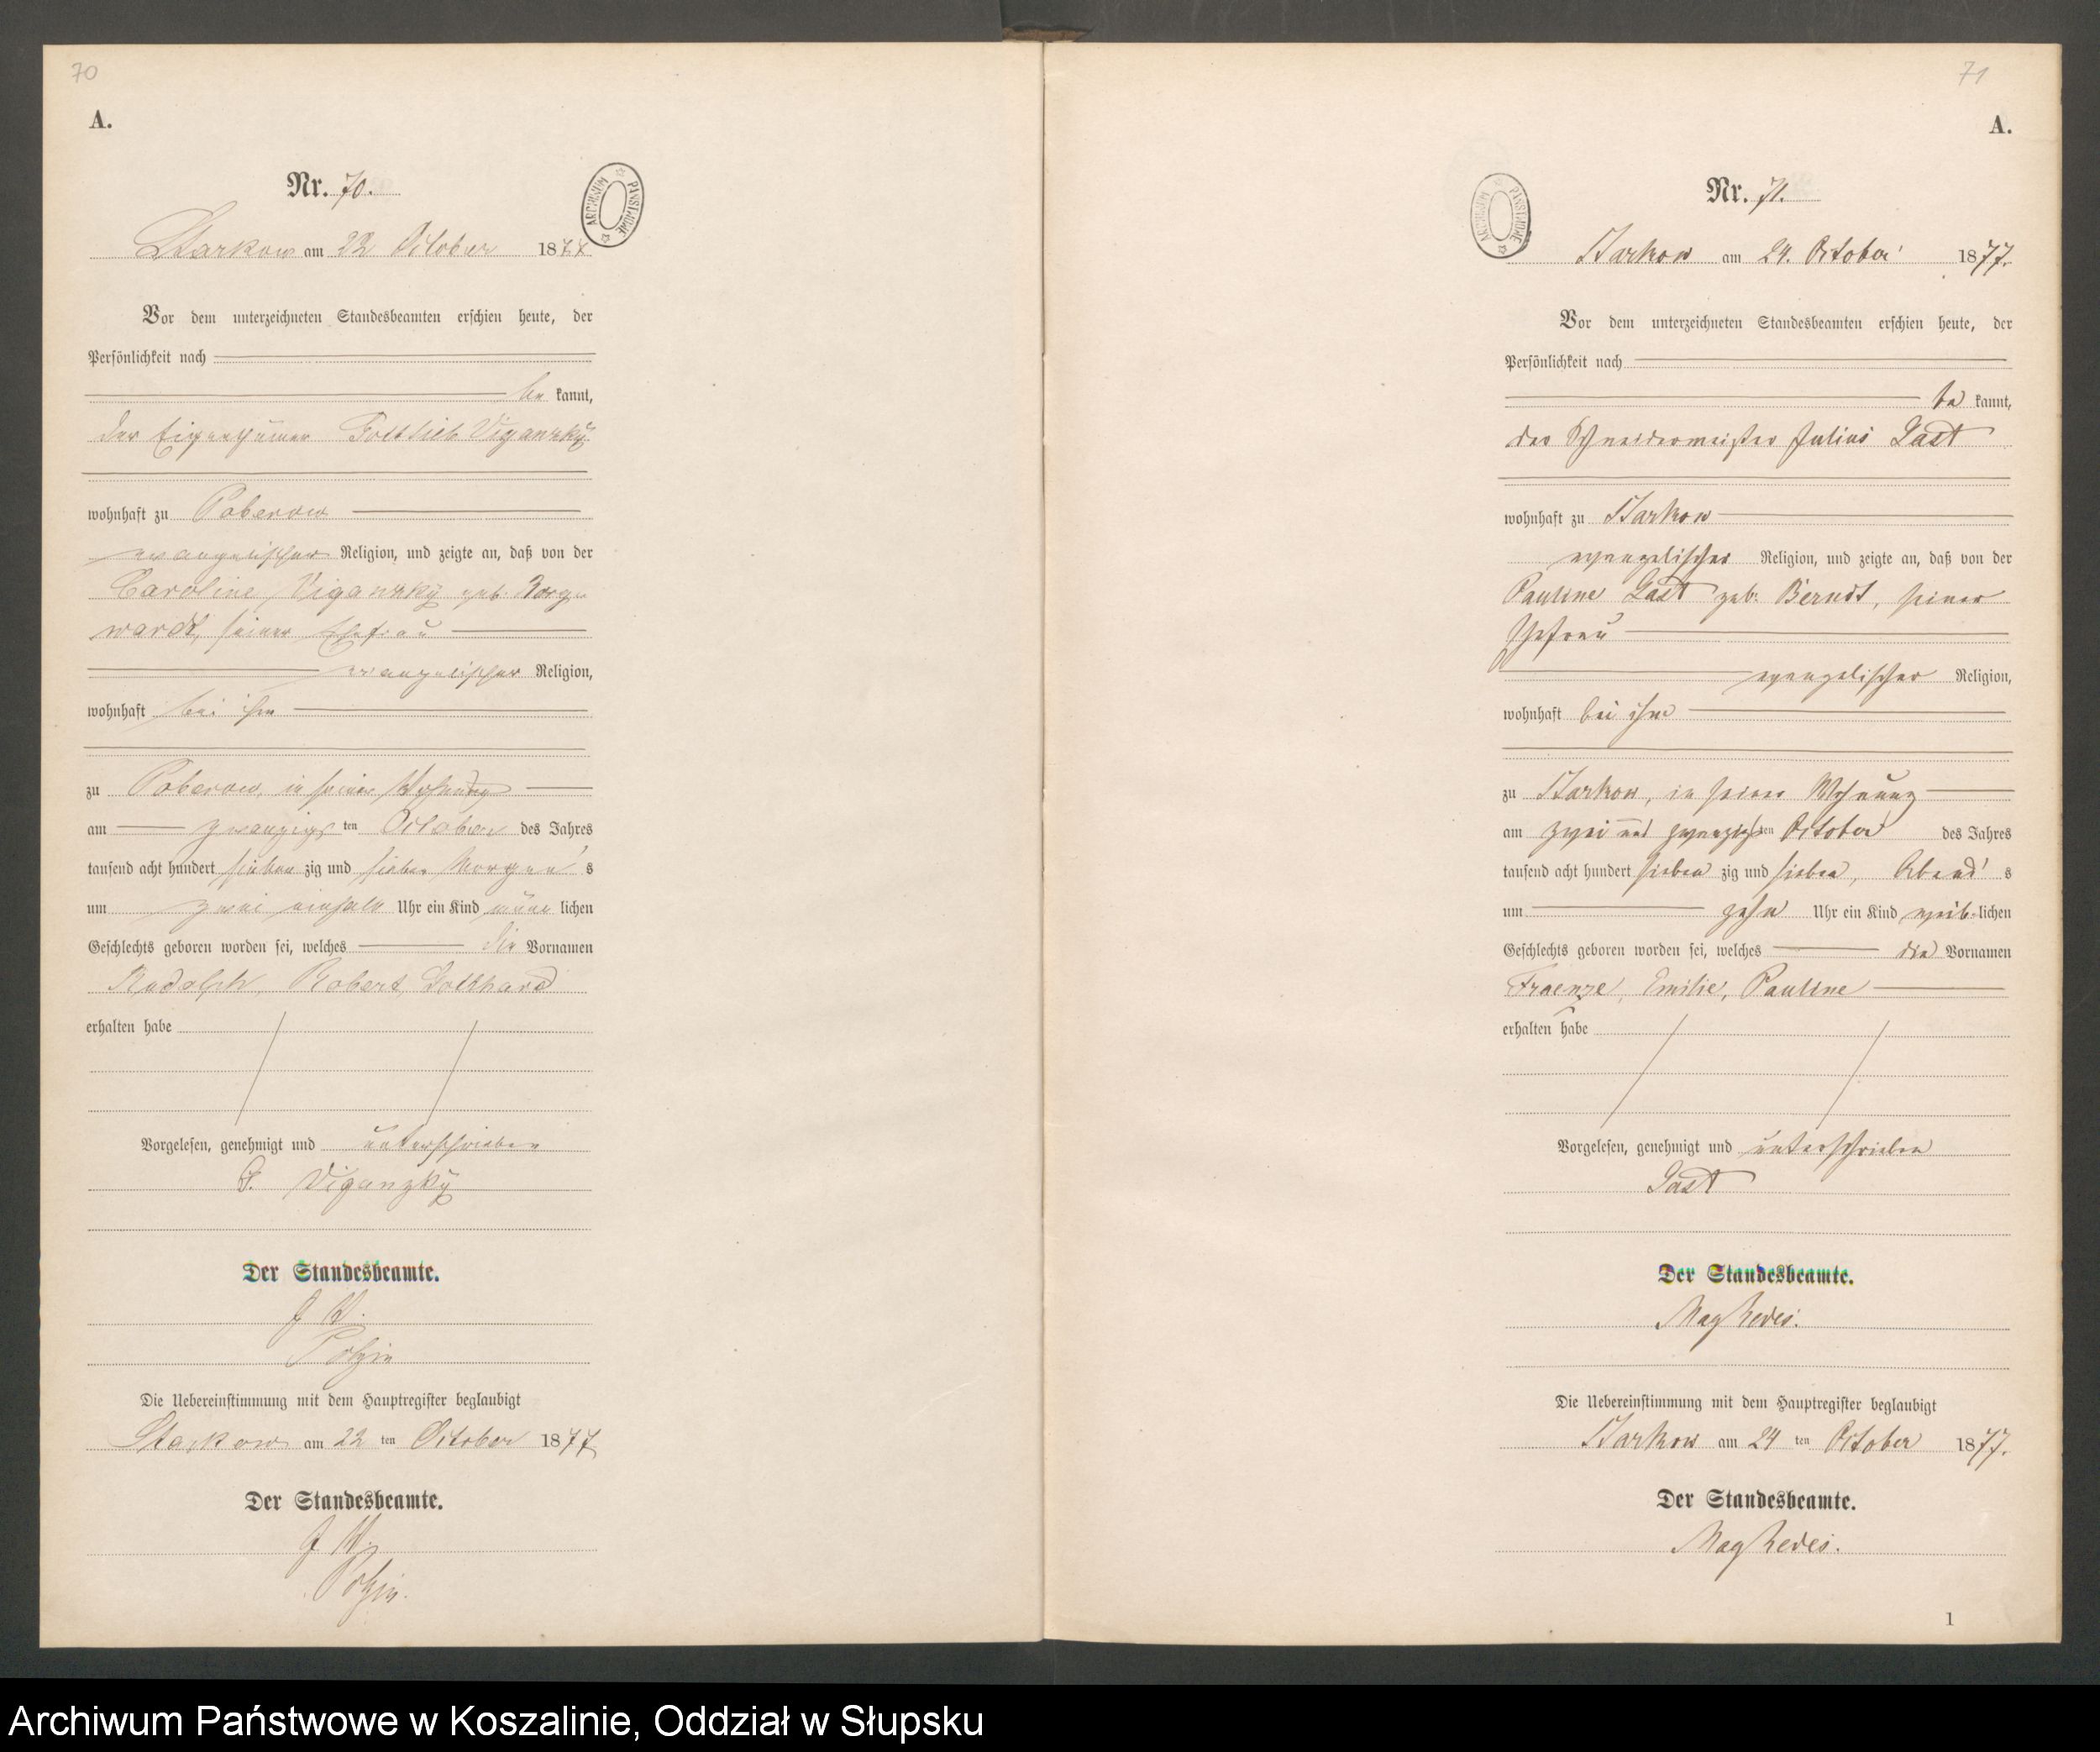 70
A.
Nr. 70.
ARCHIWUM PAŃSTWOWE
Starkow am 22 October 1877
Vor dem unterzeichneten Standesbeamten erschien heute, der
Persönlichkeit nach
be kannt,
der Eigenthümer Gottlieb Viganzky
wohnhaft zu Poberow
evangelischer Religion, und zeigte an, daß von der
Caroline Viganzky geb. Borg-
wardt, seiner Ehefrau
evangelischer Religion,
wohnhaft bei ihm
zu Poberow, in seiner Wohnung
am zwanzigs ten October des Jahres
tausend acht hundert sieben zig und sieben Morgen s
um zwei einhalb Uhr ein Kind männ lichen
Geschlechts geboren worden sei, welches die Vornamen
Rudolph, Robert, Gotthard
erhalten habe
Vorgelesen, genehmigt und unterschrieben
G. Viganzky
Der Standesbeamte.
J. V.
Polzin
Die Uebereinstimmung mit dem Hauptregister beglaubigt
Starkow am 22 ten October 1877
Der Standesbeamte.
J. V.
Polzin.
71
A.
Nr. 71.
ARCHIWUM PAŃSTWOWE
Starkow am 24. October 1877.
Vor dem unterzeichneten Standesbeamten erschien heute, der
Persönlichkeit nach
be kannt,
der Schneidermeister Julius Gast
wohnhaft zu Starkow
evangelischer Religion, und zeigte an, daß von der
Pauline Gast geb. Berndt, seiner
Ehefrau
evangelischer Religion,
wohnhaft bei ihm
zu Starkow, in seiner Wohnung
am zwei und zwanzigsten October des Jahres
tausend acht hundert sieben zig und sieben, Abend s
um zehn Uhr ein Kind weib-lichen
Geschlechts geboren worden sei, welches die Vornamen
Fraenze, Emilie, Pauline
erhalten habe
Vorgelesen, genehmigt und unterschrieben
Gast
Der Standesbeamte.
Die Uebereinstimmung mit dem Hauptregister beglaubigt
Starkow am 24 ten October 1877.
Der Standesbeamte.
1
Archiwum Państwowe w Koszalinie, Oddział w Słupsku